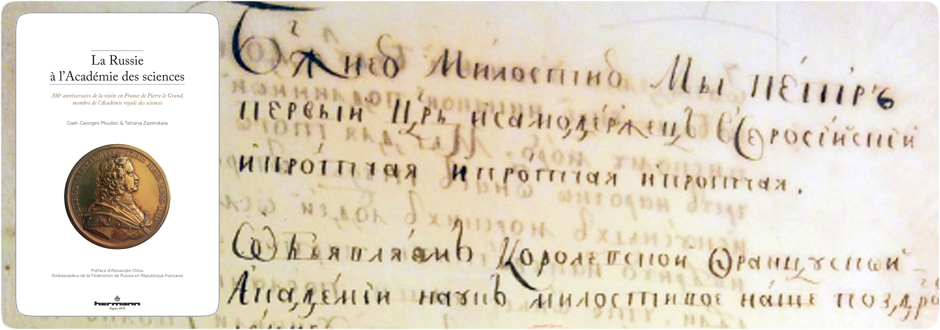 La Russie
à l'Académie des sciences
300e anniversaire de la visite en France de Pierre le Grand,
membre de l'Académie royale des sciences
Gaël-Georges Moullec & Tatiana Zazerskaia
Préface d'Alexandre Orlov
Ambassadeur de la Fédération de Russie en République Française
hermann
Depuis 1876
Бжиею Милостию Мы пétръ
первыи Црь исамодержецъ вСеросiискiи
ипротчая ипротчая ипротчая.
Объявляемъ Королевскои Француской
Академiи наукъ милостивое наше поздра